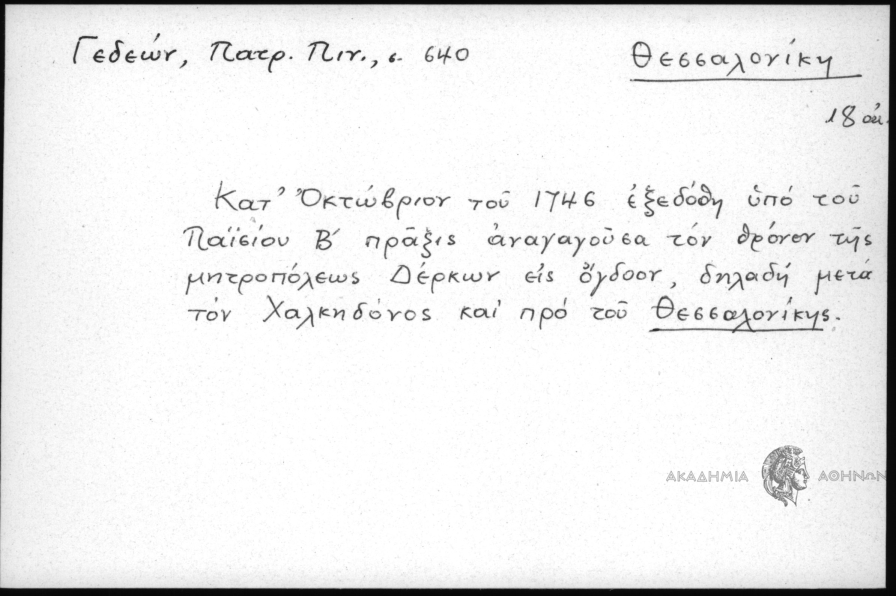 Γεδεών, Πατρ. Πιν., σ. 640
Θεσσαλονίκη
18 αἰ.
Κατ' Ὀκτώβριον τοῦ 1746 ἐξεδόθη ὑπό τοῦ
Παϊσίου Β´ πρᾶξις ἀναγαγοῦσα τόν θρόνον τῆς
μητροπόλεως Δέρκων εἰς ὄγδοον, δηλαδή μετά
τόν Χαλκηδόνος καί πρό τοῦ Θεσσαλονίκης.
ΑΚΑΔΗΜΙΑ ΑΘΗΝΩΝ